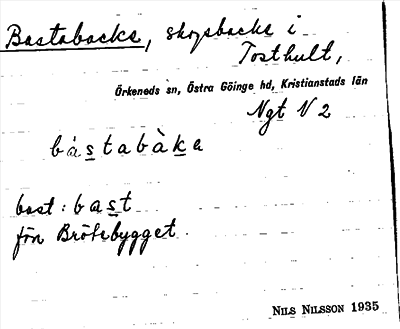 Bastabacke, skogsbacke i
Tosthult,
Örkeneds sn, Östra Göinge hd, Kristianstads län
Ngt V 2
båstabàka
bast: bast
fön Brötebygget.
NILS NILSSON 1935